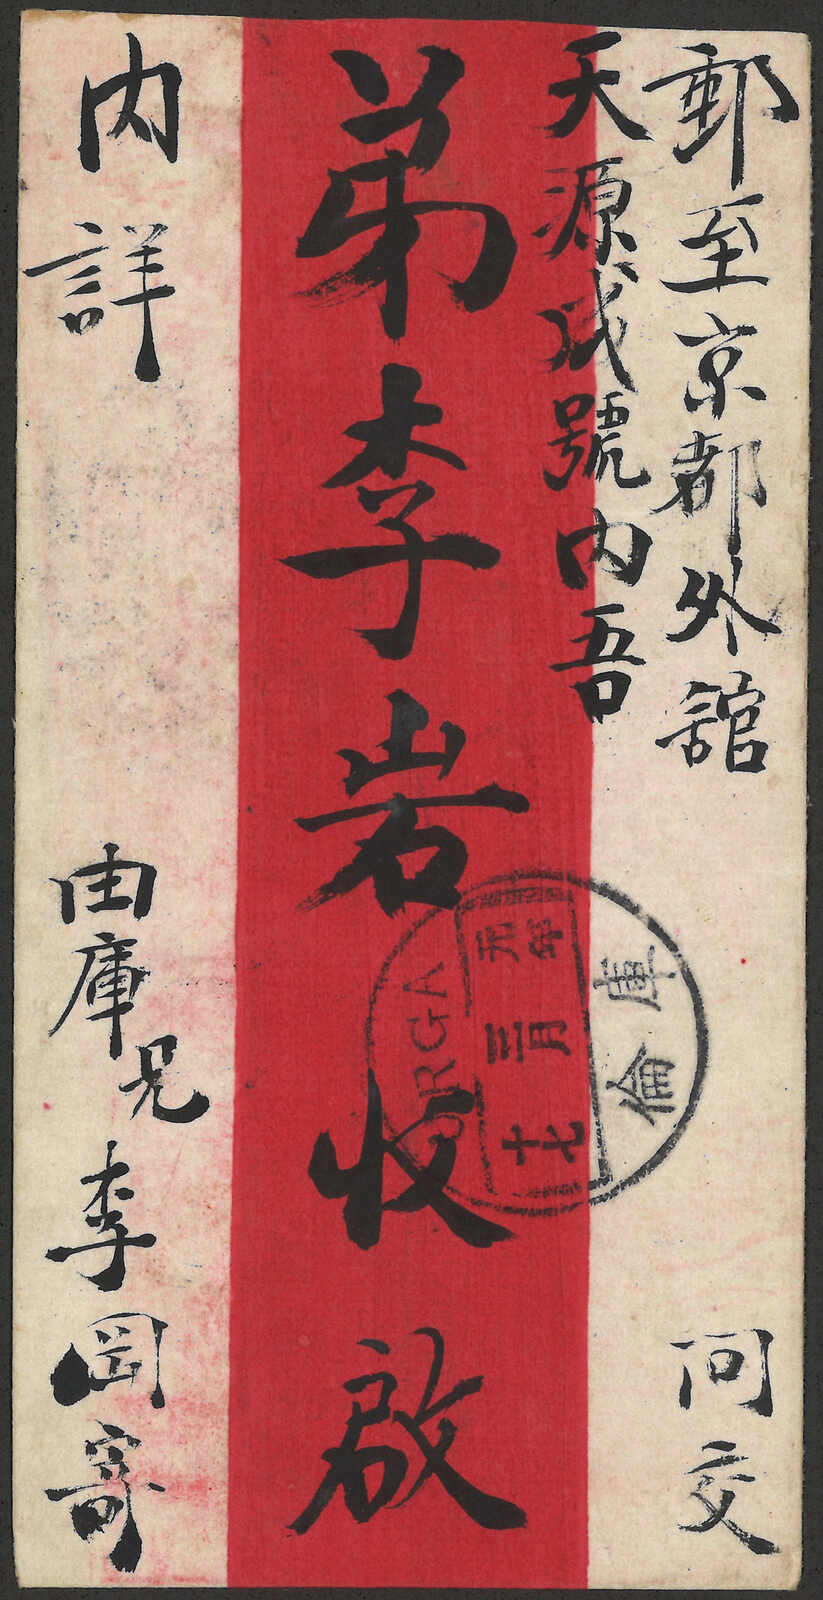 郵至京都外舘
問交
天源成號內吾
弟李岩收啟
內詳
由庫兄李岡寄
庫倫
元年
三月
十七
URGA